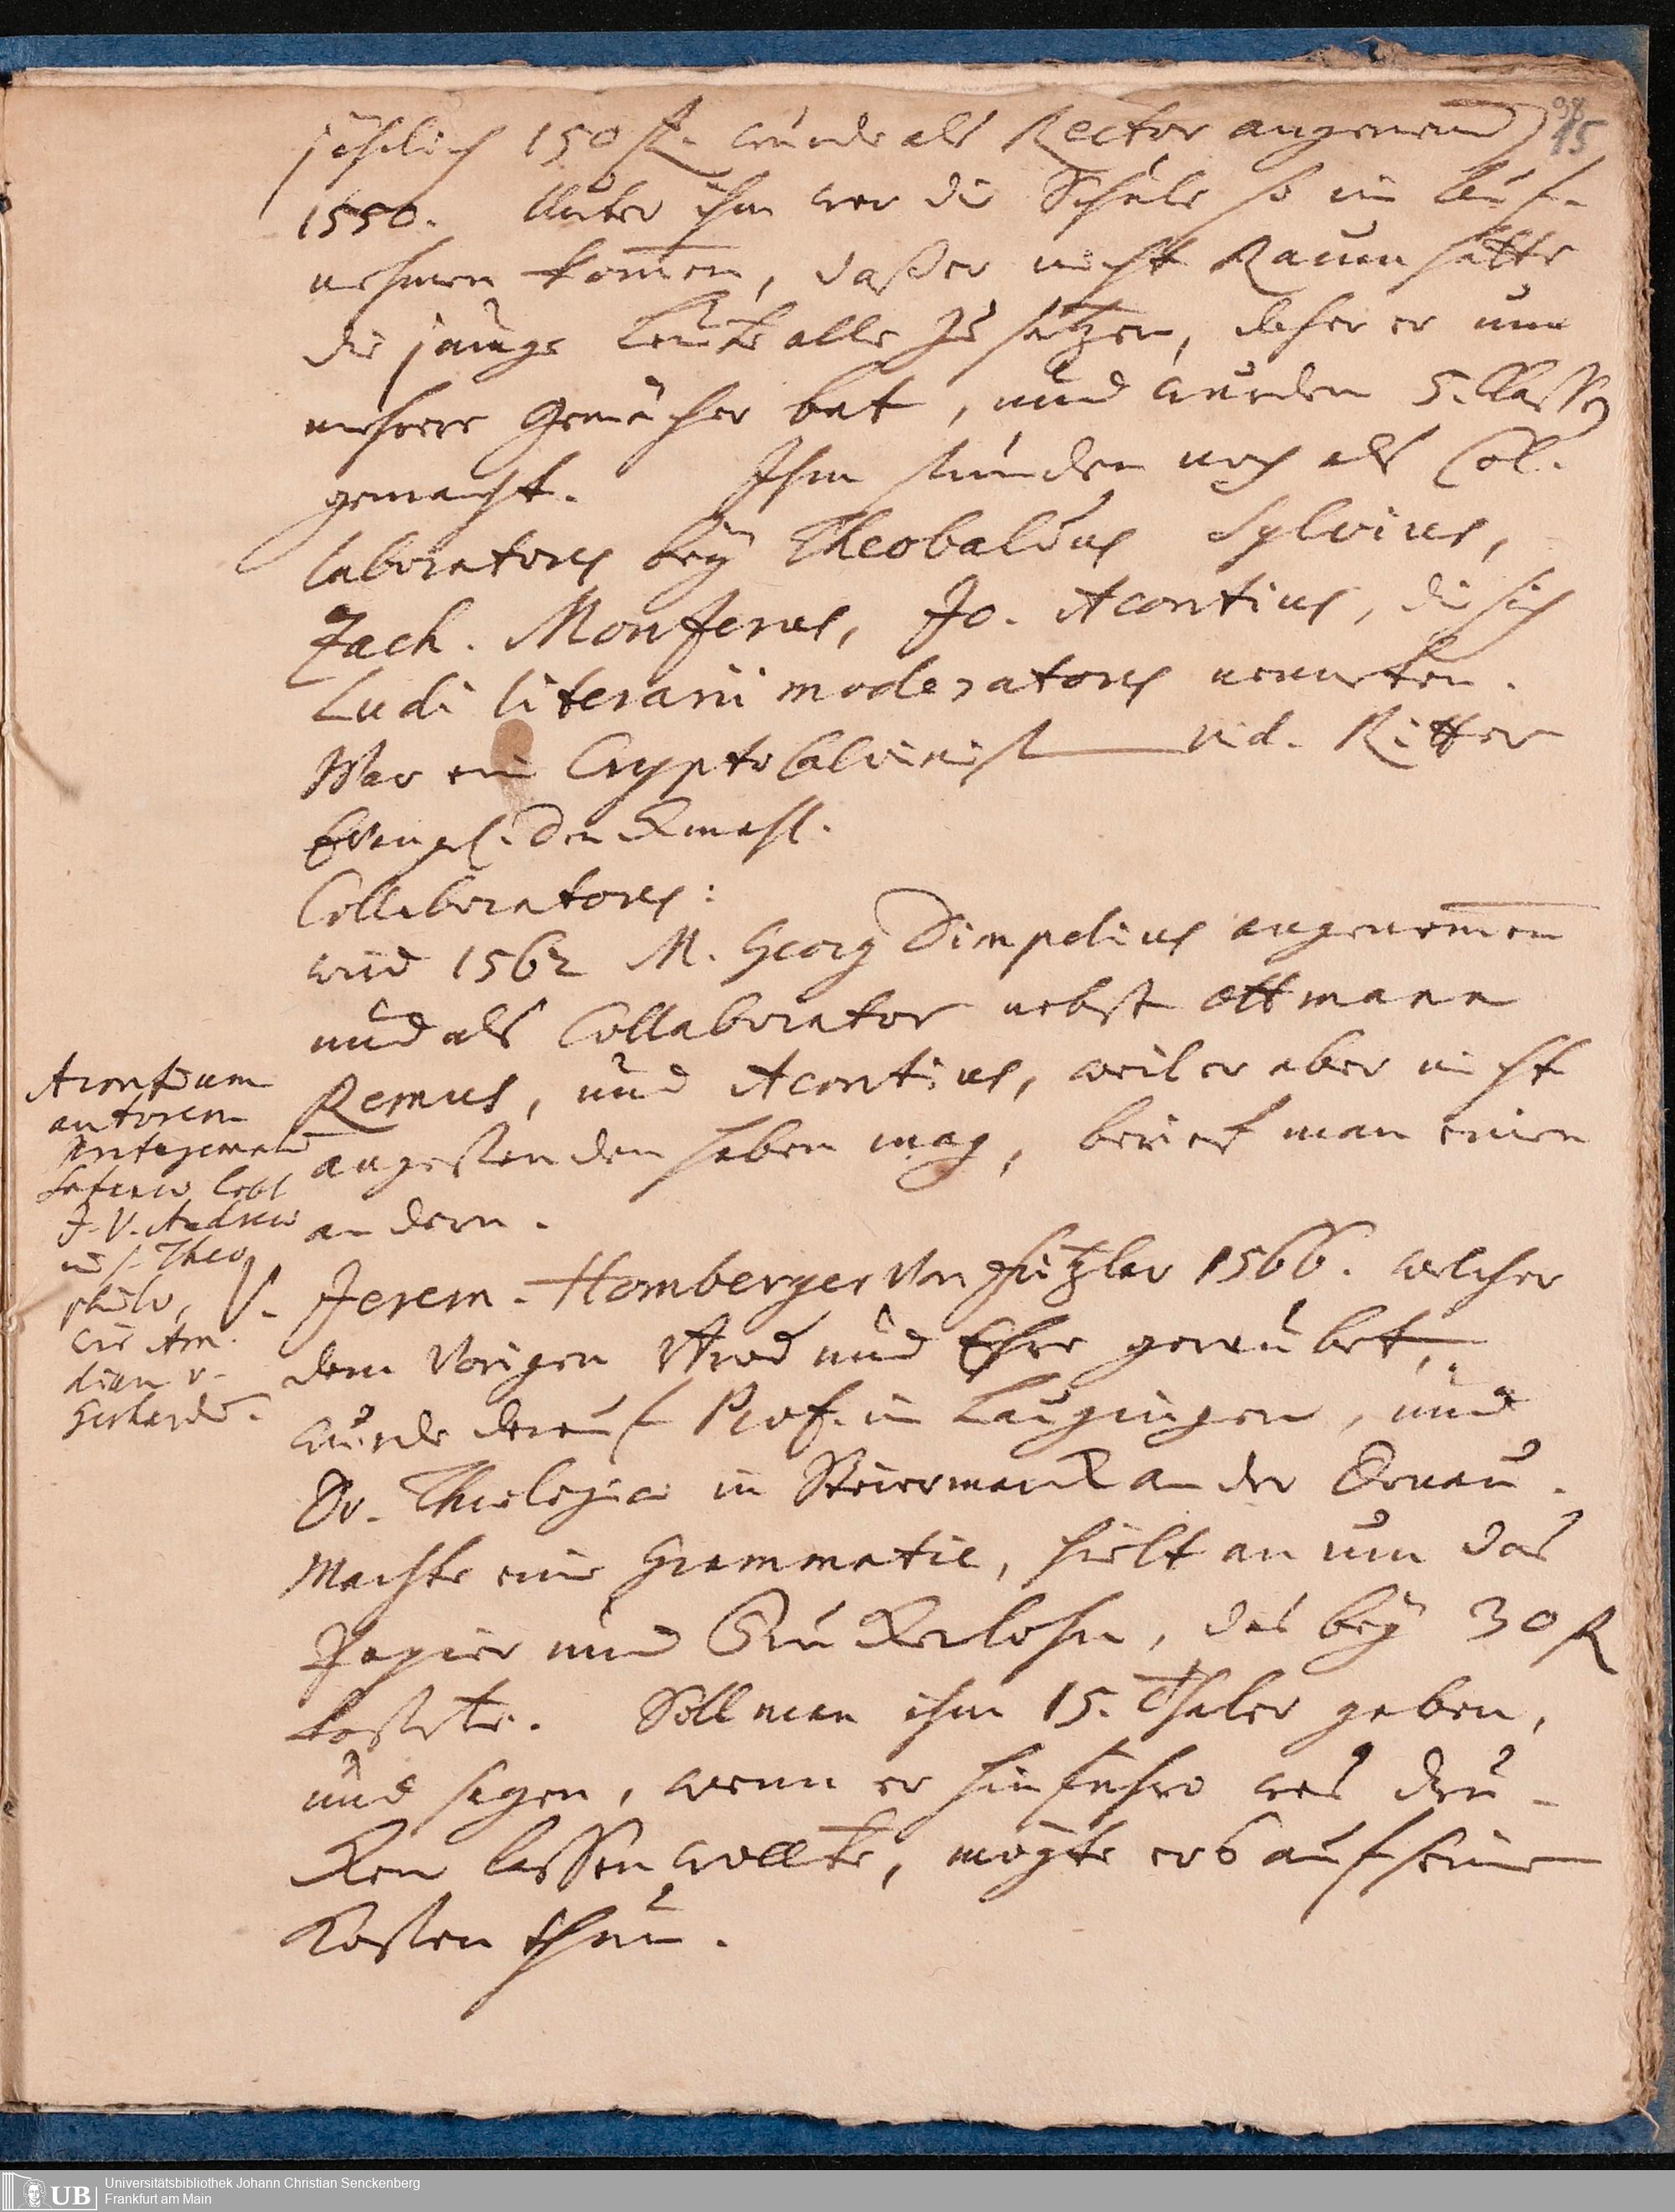 jährlich 150 fl. wurde als Rector angenomen
15
1550. Unter ihm war die Schule so in Auf-
nehmen komen, daß er nicht Raum hatte
die junge Leute alle zu setzen, daher er um
mehrere Gemächer bat, und wurden 5. Classen
gemacht. Ihm stunden noch als Col-
laboratores bey Theobaldus Sylvius,
Zach. Monzerus, Jo. Acontius, die sich
Ludi literarii moderatores nennten.
War ein CryptoCalvinist vid. Ritter
Evangel. Denkmahl.
Collaboratores:
wird 1562 M. Georg Dimpelius angenomen
und als Collaborator nebst Ottmann
Remus, und Acontius, weil er aber nicht
angestanden haben mag, berief man einen
andern.
Acontium
autorem
J. V. Andreae
Theo
philo,
Gerhard.
V. Jerem. Homberger von Fritzlar 1566. welcher
dem Vorigen und Ehre geraubet,
wurde darauf Prof. in Laugingen, und
Dr. Theologiae in Steiermark an der
Machte eine Grammatic, hielt an um das
Papier und Druckerlohn, das bey 30 fl
kostete. Soll man ihm 15. Thaler geben,
und sagen, wenn er hinführo was dru-
cken lassen wollte, mögte ers auf seine
Kosten thun.
UB Universitätsbibliothek Johann Christian Senckenberg
Frankfurt am Main